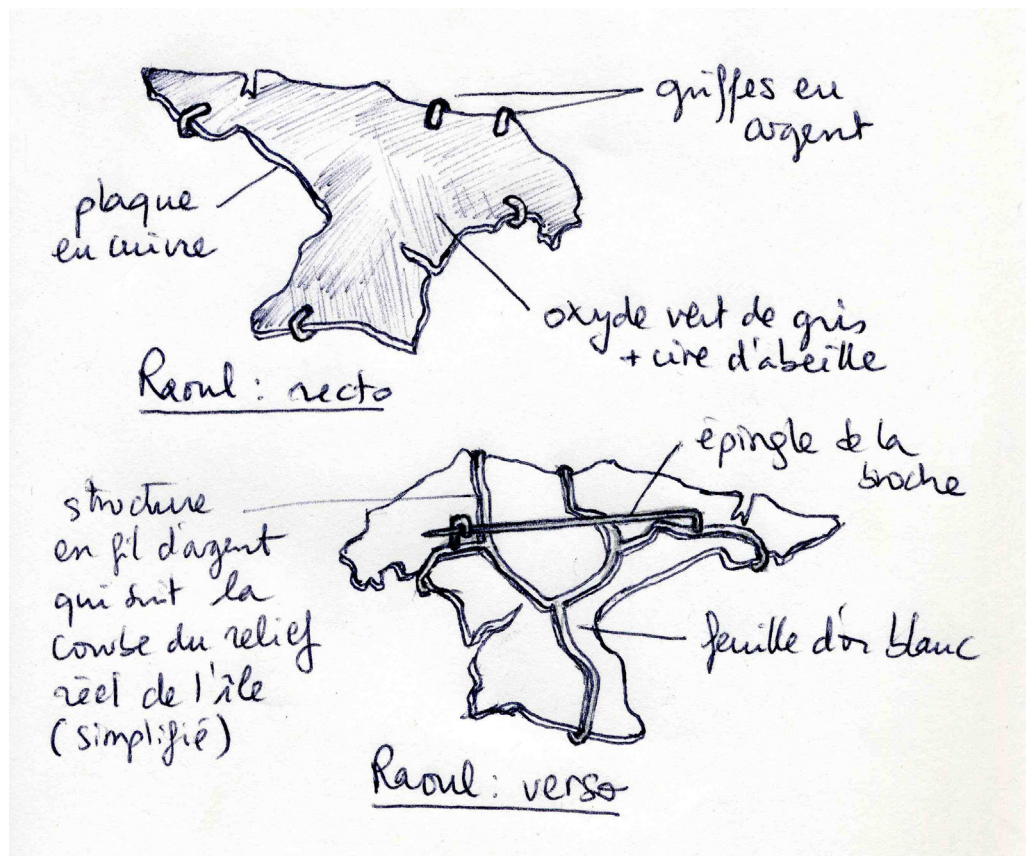 griffes en
argent
plaque
en cuivre
oxyde vert de gris
+ cire d'abeille
Raoul : recto
épingle de la
broche
structure
en fil d'argent
qui suit la
courbe du relief
réel de l'île
(simplifié)
feuille d'or blanc
Raoul : verso